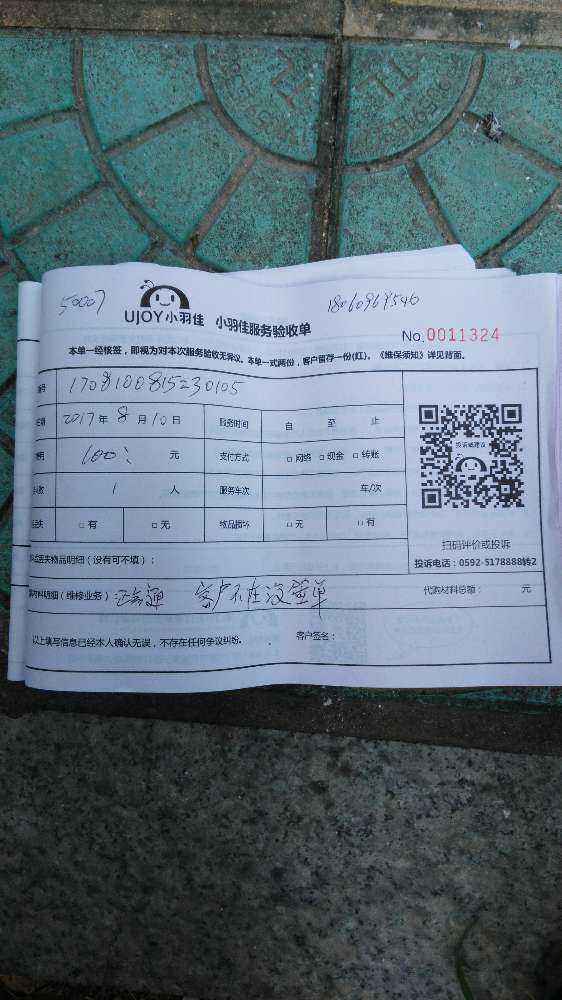 50007
UJOY小羽佳 小羽佳服务验收单
No.0011324
本单一经核签，即视为对本次服务验收无异议。本单一式两份，客户留存一份(红)。《维保须知》详见背面。
号 1708100815230105
期 2017年 8 月 10 日 服务时间 自 至 止
用 100 元 支付方式 □ 网络 □ 现金 □ 转账
数 1 人 服务车次 车/次
□ 有 □ 无 物品损坏 □ 无 □ 有
投诉或建议
扫码评价或投诉
投诉电话：0592-5178888转2
丢失物品明细（没有可不填）：
材料明细（维修业务） 客户不在没签单 代购材料总额： 元
以上填写信息已经本人确认无误，不存在任何争议纠纷。 客户签名：